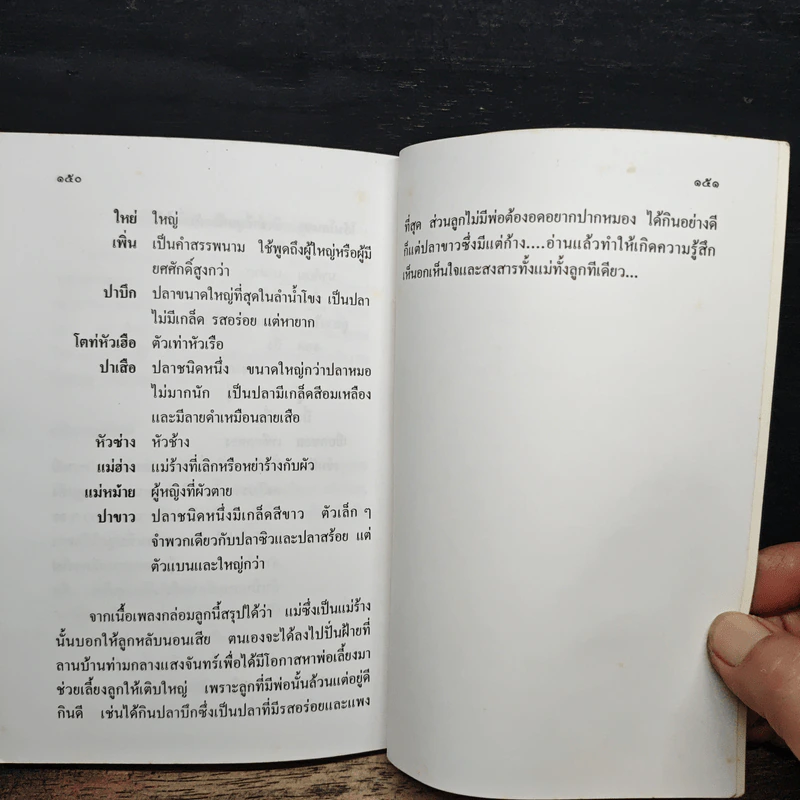 ๑๕๐
ใหย่ ใหญ่
เพิ่น เป็นคำสรรพนาม ใช้พูดถึงผู้ใหญ่หรือผู้มี
ยศศักดิ์สูงกว่า
ปาบึก ปลาขนาดใหญ่ที่สุดในลำน้ำโขง เป็นปลา
ไม่มีเกล็ด รสอร่อย แต่หายาก
โตท่หัวเฮือ ตัวเท่าหัวเรือ
ปาเสือ ปลาชนิดหนึ่ง ขนาดใหญ่กว่าปลาหมอ
ไม่มากนัก เป็นปลามีเกล็ดสีอมเหลือง
และมีลายดำเหมือนลายเสือ
หัวซ่าง หัวช้าง
แม่ฮ่าง แม่ร้างที่เลิกหรือหย่าร้างกับผัว
แม่หม้าย ผู้หญิงที่ผัวตาย
ปาขาว ปลาชนิดหนึ่งมีเกล็ดสีขาว ตัวเล็ก ๆ
จำพวกเดียวกับปลาซิวและปลาสร้อย แต่
ตัวแบนและใหญ่กว่า
จากเนื้อเพลงกล่อมลูกนี้สรุปได้ว่า แม่ซึ่งเป็นแม่ร้าง
นั้นบอกให้ลูกหลับนอนเสีย ตนเองจะได้ลงไปปั่นฝ้ายที่
ลานบ้านท่ามกลางแสงจันทร์เพื่อได้มีโอกาสหาพ่อเลี้ยงมา
ช่วยเลี้ยงลูกให้เติบใหญ่ เพราะลูกที่มีพ่อนั้นล้วนแต่อยู่ดี
กินดี เช่นได้กินปลาบึกซึ่งเป็นปลาที่มีรสอร่อยและแพง
๑๕๑
ที่สุด ส่วนลูกไม่มีพ่อต้องอดอยากปากหมอง ได้กินอย่างดี
ก็แต่ปลาขาวซึ่งมีแต่ก้าง....อ่านแล้วทำให้เกิดความรู้สึก
เห็นอกเห็นใจและสงสารทั้งแม่ทั้งลูกทีเดียว...